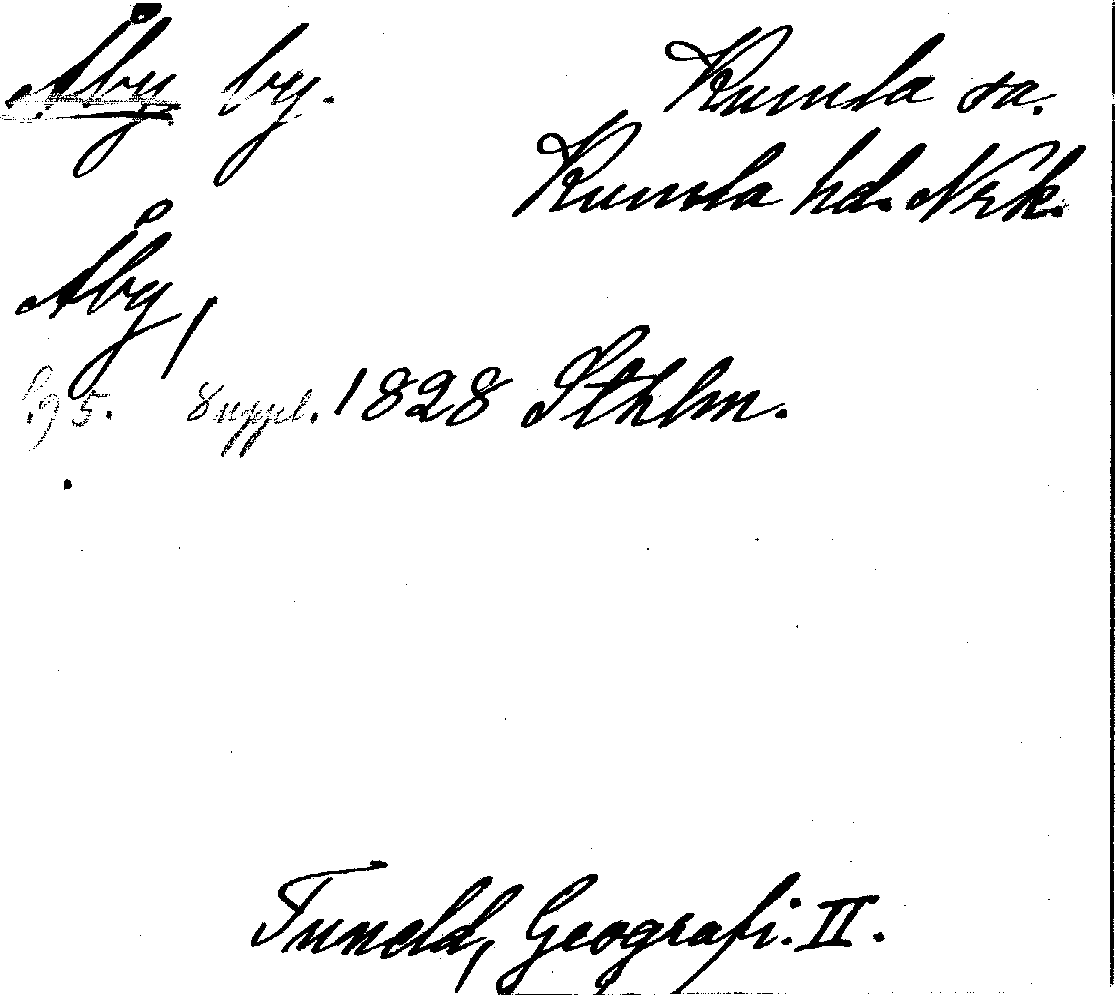 Åby by. Kumla sn.
Kumla hd. Nrk.
Åby,
s. 95. Suppl. 1828 Sthlm.
Tuneld, Geografi. II.